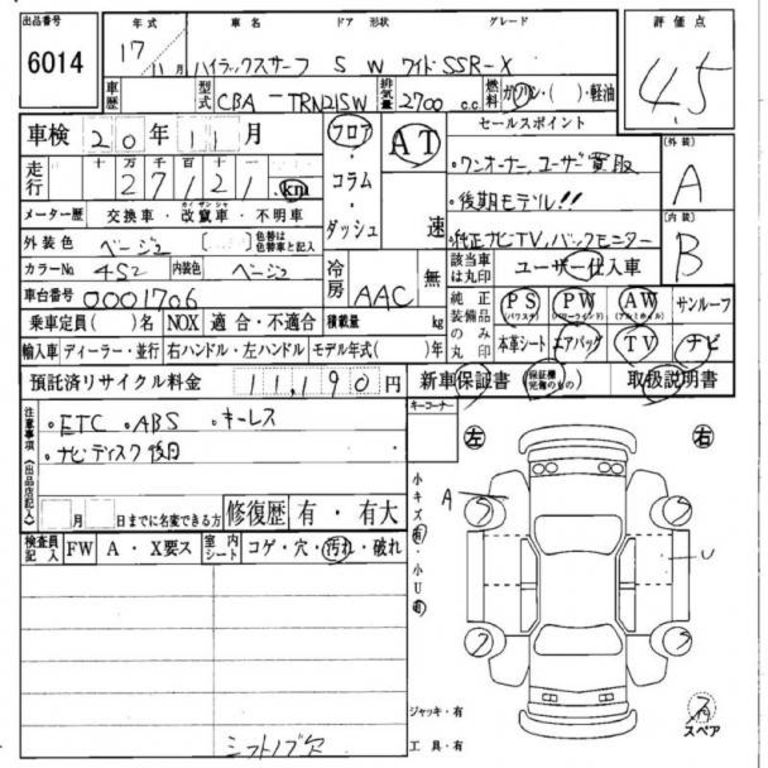 出品番号 年式 車名 ドア 形状 グレード 評価点
6014 17 11月 ハイラックスサーフ 5 W ワイド SSR-X 4.5
車歴 型式 CBA-TRN215W 排気量 2700 c.c. 燃料 ガソリン・( )・軽油
車検 20年 11月 フロア・コラム・ダッシュ AT 速 セールスポイント
走行 十万千百十一 27121 km
・ワンオーナー、ユーザー買取
・後期モデル!!
・純正ナビTV、バックモニター
(外装) A
(内装) B
メーター歴 交換車・改竄車・不明車
カイザンシャ
外装色 ベージュ 〔 〕色替は色替車と記入
カラーNo 4S2 内装色 ベージュ
冷房 AAC 無
該当車は丸印 ユーザー仕入車
車台番号 0001706
純正装備品のみ丸印 PS (パワステ) PW (パワーウインド) AW (アルミホイル) サンルーフ
本革シート エアバッグ TV ナビ
乗車定員( )名 NOX 適合・不適合 積載量 kg
輸入車 ディーラー・並行 右ハンドル・左ハンドル モデル年式( )年
預託済リサイクル料金 11,190円 新車保証書 (保証欄完備のもの) 取扱説明書
注意事項(出品店記入)
・ETC ・ABS ・キーレス
・ナビディスク後日
キーコーナー
左 右
月 日までに名変できる方 修復歴 有・有大
検査員記入 FW A・X要ス 室内シート コゲ・穴・汚れ・破れ
小キズ有・小U有
A
U
シフトノブ欠
ジャッキ・有
工具・有
スペア